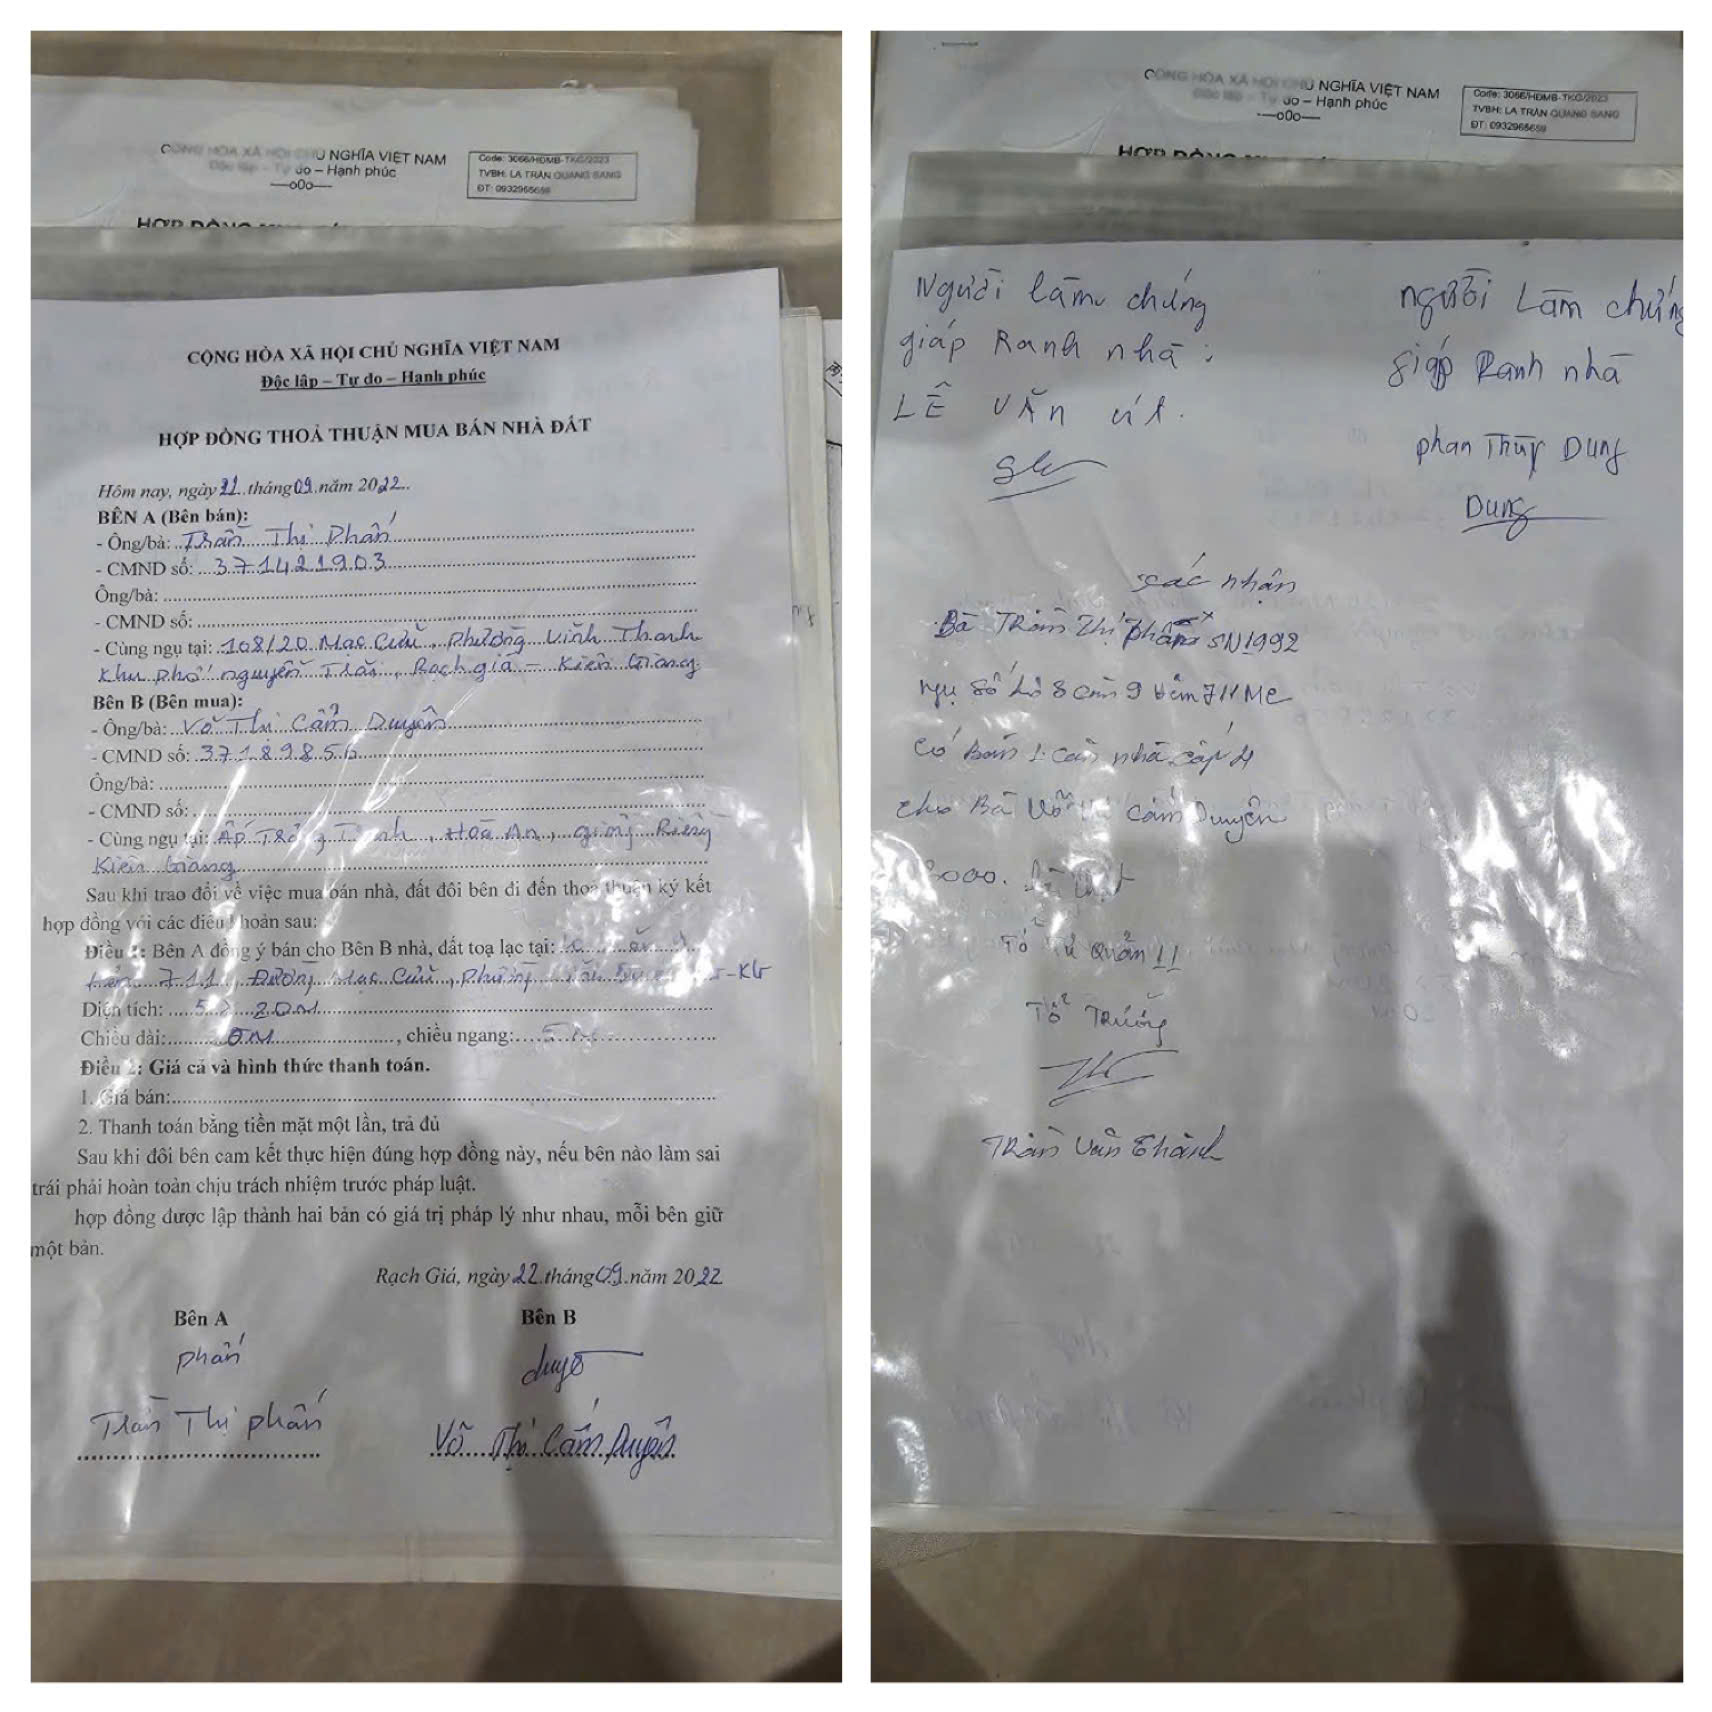 CỘNG HÒA XÃ HỘI CHỦ NGHĨA VIỆT NAM
Độc lập – Tự do – Hạnh phúc
—o0o—
Code: 3066/HĐMB-TKG/2023
TVBH: LA TRẦN QUANG SANG
ĐT: 0932965659
HỢP ĐỒNG
CỘNG HÒA XÃ HỘI CHỦ NGHĨA VIỆT NAM
Độc lập – Tự do – Hạnh phúc
HỢP ĐỒNG THOẢ THUẬN MUA BÁN NHÀ ĐẤT
Hôm nay, ngày 22 tháng 09 năm 2022
BÊN A (Bên bán):
- Ông/bà: Trần Thị Phấn
- CMND số: 371421903
Ông/bà:
- CMND số:
- Cùng ngụ tại: 108/20 Mạc Cửu, Phường Vĩnh Thanh
khu phố nguyễn Trãi, Rạch giá – Kiên Giang
Bên B (Bên mua):
- Ông/bà: Võ Thị Cẩm Duyên
- CMND số: 371898556
Ông/bà:
- CMND số:
- Cùng ngụ tại: Ấp Thanh, Hoà An, giồng Riềng
Kiên Giang
Sau khi trao đổi về việc mua bán nhà, đất đôi bên đi đến thoả thuận ký kết
hợp đồng với các điều khoản sau:
Điều 1: Bên A đồng ý bán cho Bên B nhà, đất toạ lạc tại:
711, Đường Mạc Cửu, phường -KG
Diện tích: 5 x 20m
Chiều dài: 20m, chiều ngang: 5m
Điều 2: Giá cả và hình thức thanh toán.
1. Giá bán:
2. Thanh toán bằng tiền mặt một lần, trả đủ
Sau khi đôi bên cam kết thực hiện đúng hợp đồng này, nếu bên nào làm sai
trái phải hoàn toàn chịu trách nhiệm trước pháp luật.
hợp đồng được lập thành hai bản có giá trị pháp lý như nhau, mỗi bên giữ
một bản.
Rạch Giá, ngày 22 tháng 09 năm 2022
Bên A
Bên B
Phấn
duyê
Trần Thị phấn
Võ Thị Cẩm Duyên
CỘNG HÒA XÃ HỘI CHỦ NGHĨA VIỆT NAM
Độc lập – Tự do – Hạnh phúc
—o0o—
Code: 3066/HĐMB-TKG/2023
TVBH: LA TRẦN QUANG SANG
ĐT: 0932965659
HỢP ĐỒNG
Người làm chứng
giáp Ranh nhà:
LÊ VĂN út.
người Làm chứng
giáp Ranh nhà
phan Thùy Dung
Dung
xác nhận
Bà Trần Thị Phấn SN 1992
ngụ số Lô 8 căn 9 711 MC
có Bán 1 căn nhà cấp 4
cho Bà Võ Thị Cẩm Duyên
Tổ Tự Quản 11
Tổ Trưởng
Trần Văn Thành